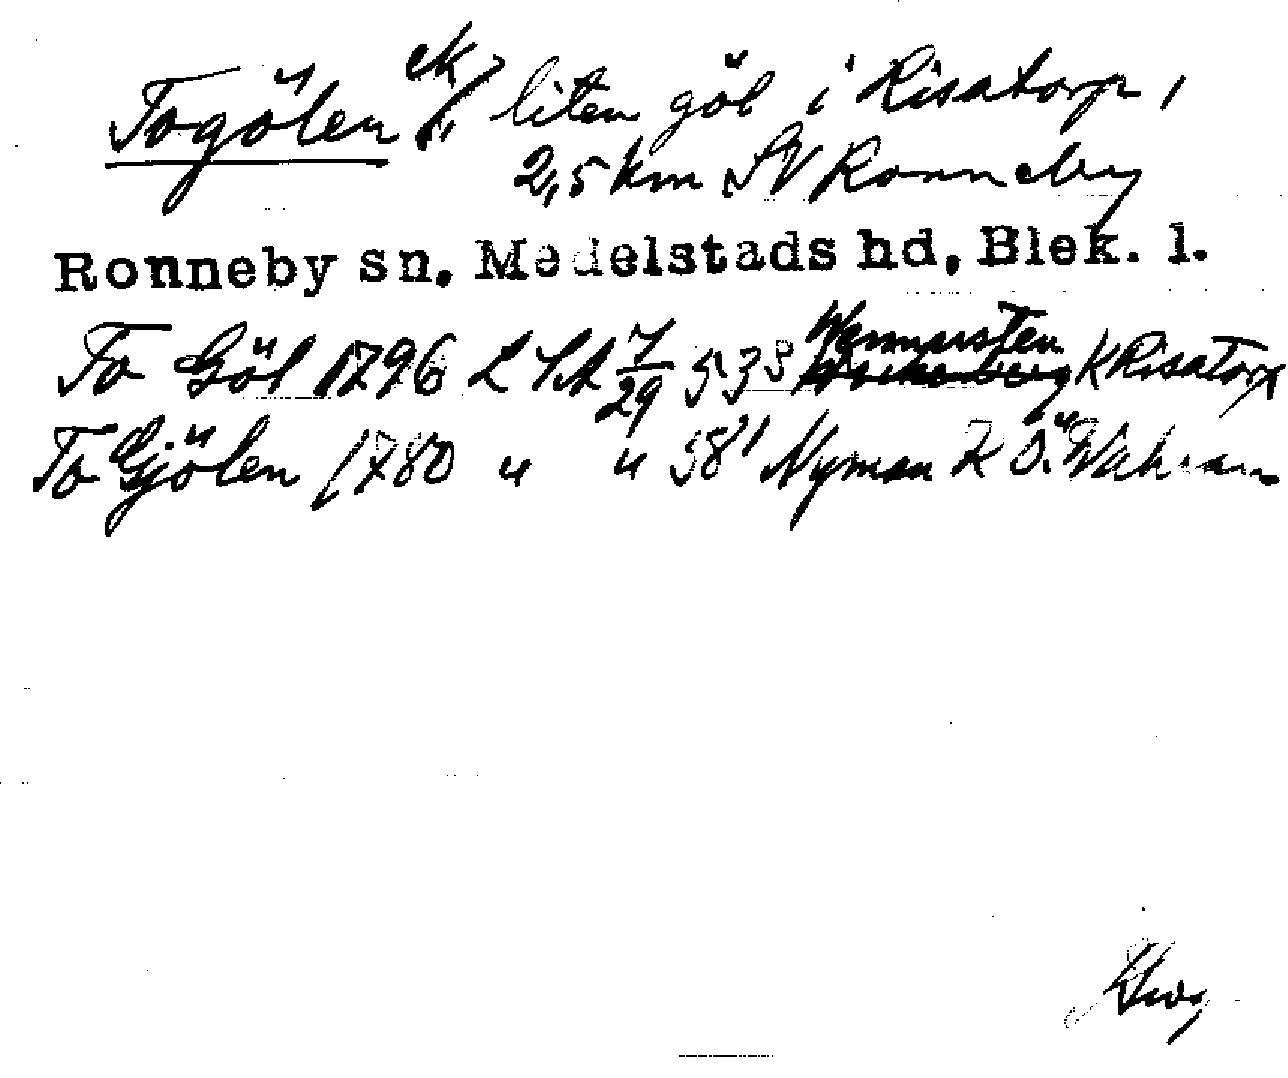 Togölen ek/ liten göl i Risatorp,
2,5 km SV Ronneby
Ronneby sn. Medelstads hd. Blek. l.
To Göl 1796 LSA 7/29 53 Wennersten K Risatorp
To Gjölen 1780 " " 58 Nyman K Ö.